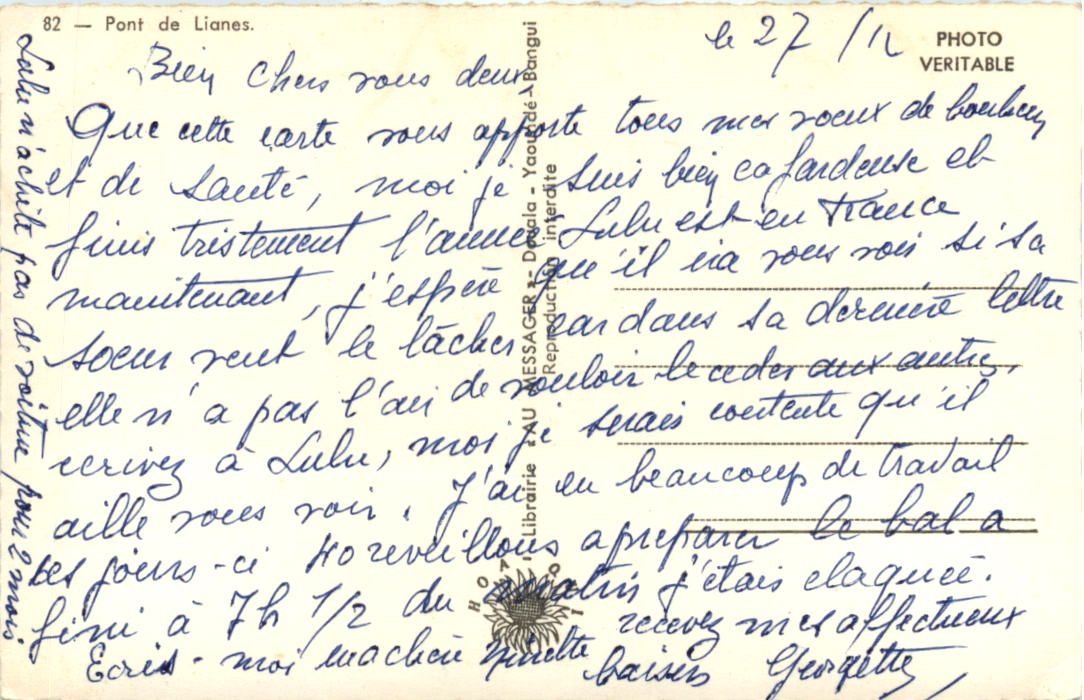 82 — Pont de Lianes.
PHOTO
VERITABLE
le 27/12
Bien chers vous deux
Que cette carte vous apporte tous mes voeux de bonheur
et de santé, moi je suis bien cafardeuse et
finis tristement l'année Lulu est en France
maintenant, j'espère qu'il ira vous voir si sa
soeur veut le lâcher car dans sa dernière lettre
elle n'a pas l'air de vouloir le ceder aux autres,
ecrivez à Lulu, moi je serais contente qu'il
aille vous voir. J'ai eu beaucoup de travail
ces jours-ci 40 reveillons a preparer le bal a
fini à 7h 1/2 du matin j'étais claquée.
Ecris-moi ma chère Ninette recevez mes affectueux
baisers Georgette
Lulu n'achète pas de voiture pour 2 mois
Librairie "AU MESSAGER" - Douala - Yaoundé - Bangui
Reproduction interdite
HOA-QUI